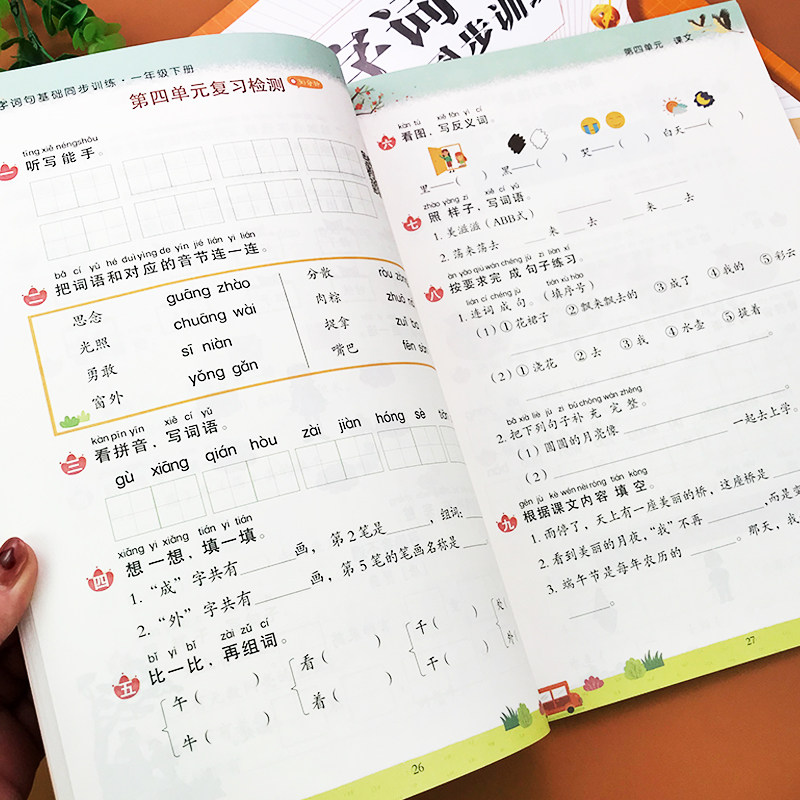 字词句基础同步训练·一年级下册
第四单元复习检测
tīng xiě néng shǒu
一 听写能手。
bǎ cí yǔ hé duì yìng de yīn jié lián yi lián
二 把词语和对应的音节连一连。
思念 guāng zhào
光照 chuāng wài
勇敢 sī niàn
窗外 yǒng gǎn
分散
肉粽
捉拿
嘴巴
kàn pīn yīn xiě cí yǔ
三 看拼音，写词语。
gù xiāng qián hòu zài jiàn hóng sè
xiǎng yi xiǎng tián yi tián
四 想一想，填一填。
1. “成”字共有 画，第2笔是 ，组词:
2. “外”字共有 画，第5笔的笔画名称是
bǐ yi bǐ zài zǔ cí
五 比一比，再组词。
午（ ） 看（ ） 千（ ）
牛（ ） 着（ ） 干（ ）
26
字词
同步训练
第四单元 课文
kàn tú xiě fǎn yì cí
六 看图，写反义词。
里——（ ） 黑——（ ） 哭——（ ） 白天——（ ）
zhào yàng zi xiě cí yǔ
七 照样子，写词语。
1. 美滋滋（ABB式）
2. 荡来荡去 来 去 来 去
àn yāo qiú wán chéng jù zi liàn xí
八 按要求完成句子练习。
lián cí chéng jù tián xù hào
1. 连词成句。（填序号）
（1）①花裙子 ②飘来飘去的 ③成了 ④我的 ⑤彩云
（2）①浇花 ②去 ③我 ④水壶 ⑤提着
bǎ xià liè jù zi bǔ chōng wán zhěng
2. 把下列句子补充完整。
（1）圆圆的月亮像 一起去上学。
（2）
gēn jù kè wén nèi róng tián kòng
九 根据课文内容填空。
1. 雨停了，天上有一座美丽的桥，这座桥是
2. 看到美丽的月夜，“我”不再 ，而是
3. 端午节是每年农历的 。那天，我
27